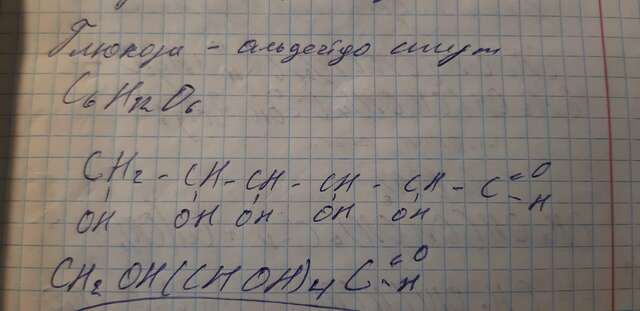 Глюкоза - альдегидо спирт
C6H12O6
CH2 - CH - CH - CH - CH - C = O
OH OH OH OH OH - H
CH2OH(CHOH)4 C = O
- H